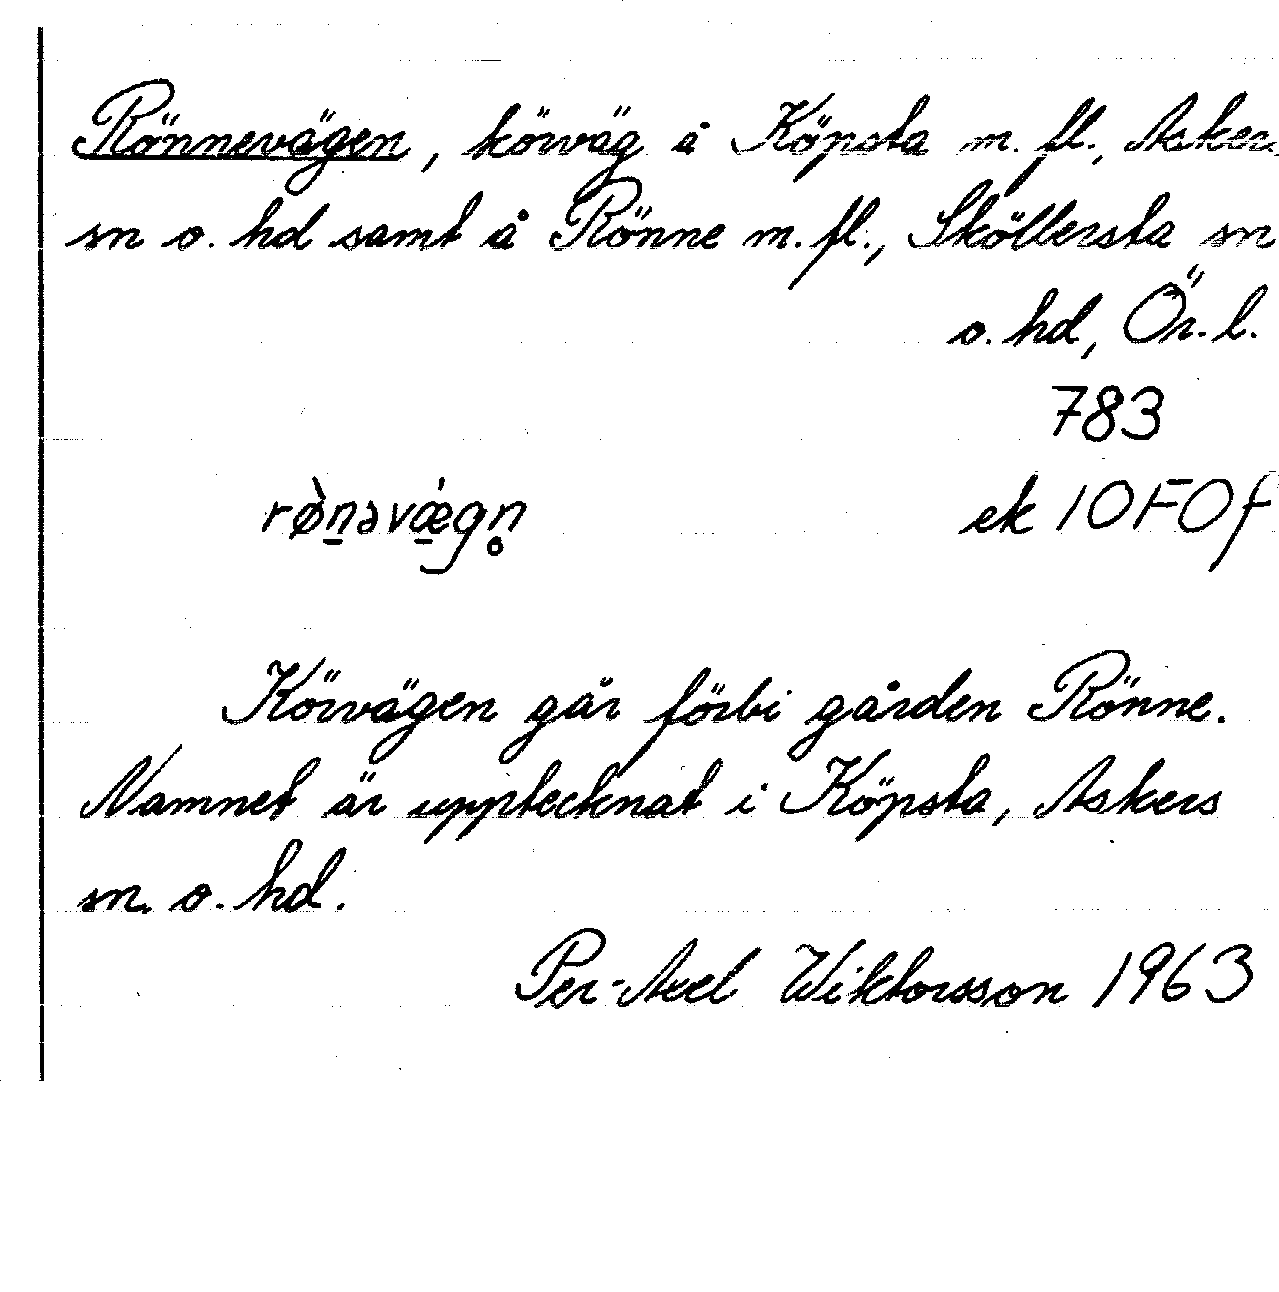 Rönnevägen, körväg å Köpsta m. fl., Askers
sn o. hd samt å Rönne m. fl., Sköllersta sn
o. hd, Ör. l.
783
rø̀n̠əvǽ̠gn̥ ek 10F0f
Körvägen går förbi gården Rönne.
Namnet är upptecknat i Köpsta, Askers
sn. o. hd.
Per-Axel Wiktorsson 1963